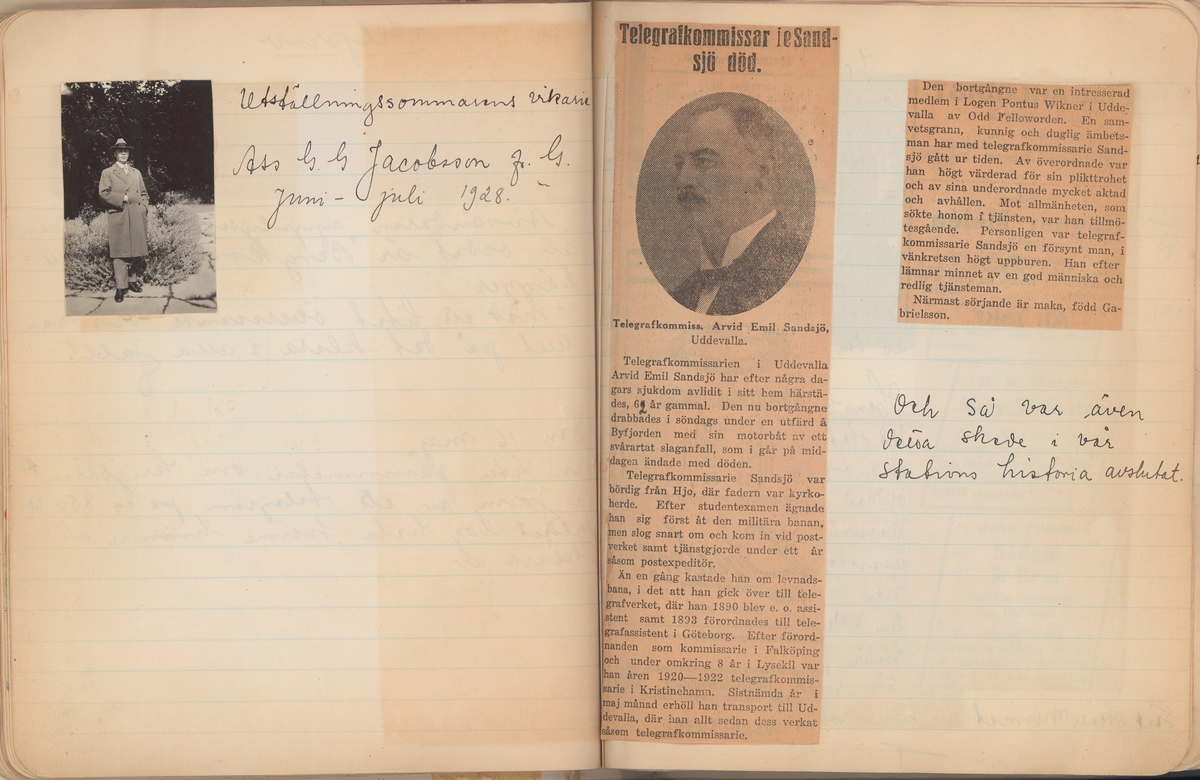 Utställningssommarens vikarie
Ass G. G Jacobsson fr. G.
Juni - juli 1928.
Telegrafkommissarie Sand-
sjö död.
Telegrafkommiss. Arvid Emil Sandsjö,
Uddevalla.
Telegrafkommissarien i Uddevalla
Arvid Emil Sandsjö har efter några da-
gars sjukdom avlidit i sitt hem härstä-
des, 62 år gammal. Den nu bortgångne
drabbades i söndags under en utfärd å
Byfjorden med sin motorbåt av ett
svårartat slaganfall, som i går på mid-
dagen ändade med döden.
Telegrafkommissarie Sandsjö var
bördig från Hjo, där fadern var kyrko-
herde. Efter studentexamen ägnade
han sig först åt den militära banan,
men slog snart om och kom in vid post-
verket samt tjänstgjorde under ett år
såsom postexpeditör.
Än en gång kastade han om levnads-
bana, i det att han gick över till tele-
grafverket, där han 1890 blev e. o. assi-
stent samt 1893 förordnades till tele-
grafassistent i Göteborg. Efter förord-
nanden som kommissarie i Falköping
och under omkring 8 år i Lysekil var
han åren 1920—1922 telegrafkommis-
sarie i Kristinehamn. Sistnämda år i
maj månad erhöll han transport till Ud-
devalla, där han allt sedan dess verkat
såsom telegrafkommissarie.
Den bortgångne var en intresserad
medlem i Logen Pontus Wikner i Udde-
valla av Odd Felloworden. En sam-
vetsgrann, kunnig och duglig ämbets-
man har med telegrafkommissarie Sand-
sjö gått ur tiden. Av överordnade var
han högt värderad för sin plikttrohet
och av sina underordnade mycket aktad
och avhållen. Mot allmänheten, som
sökte honom i tjänsten, var han tillmö-
tesgående. Personligen var telegraf-
kommissarie Sandsjö en försynt man, i
vänkretsen högt uppburen. Han efter
lämnar minnet av en god människa och
redlig tjänsteman.
Närmast sörjande är maka, född Ga-
brielsson.
Och så var även
detta skede i vår
stations historia avslutat.